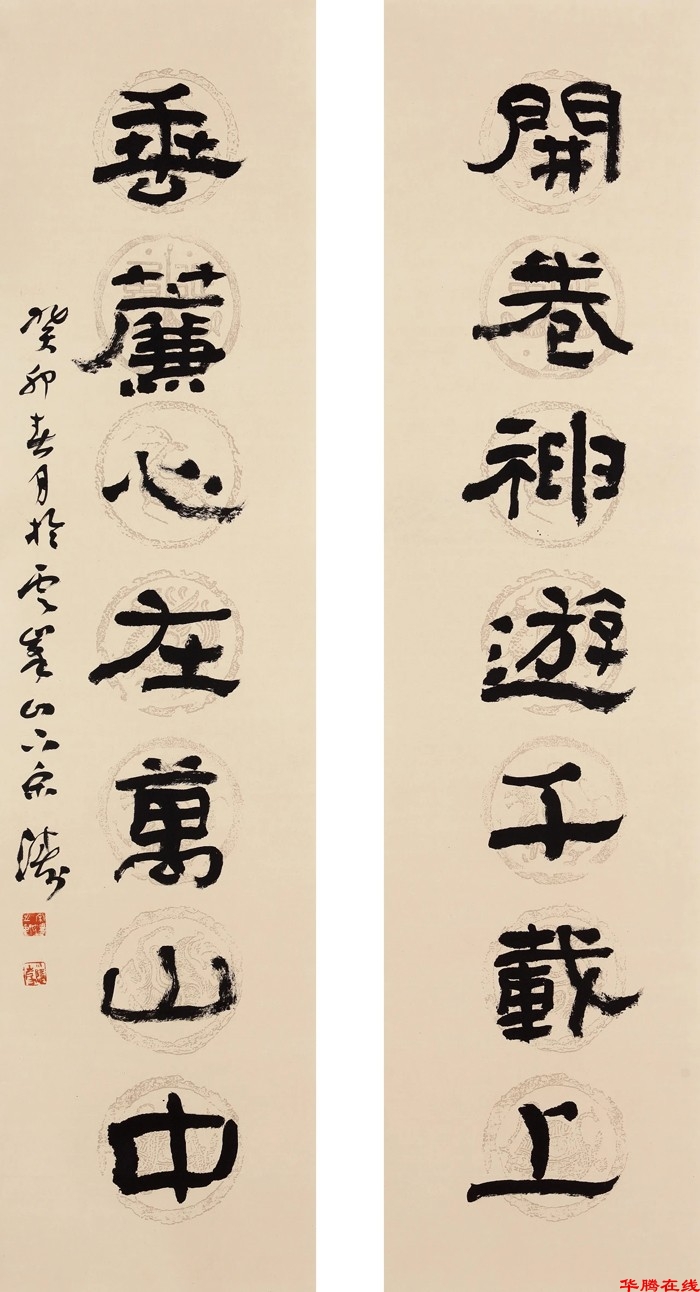 開卷神遊千載上
垂簾心在萬山中
癸卯春月於雲峯山下宋濤
华腾在线